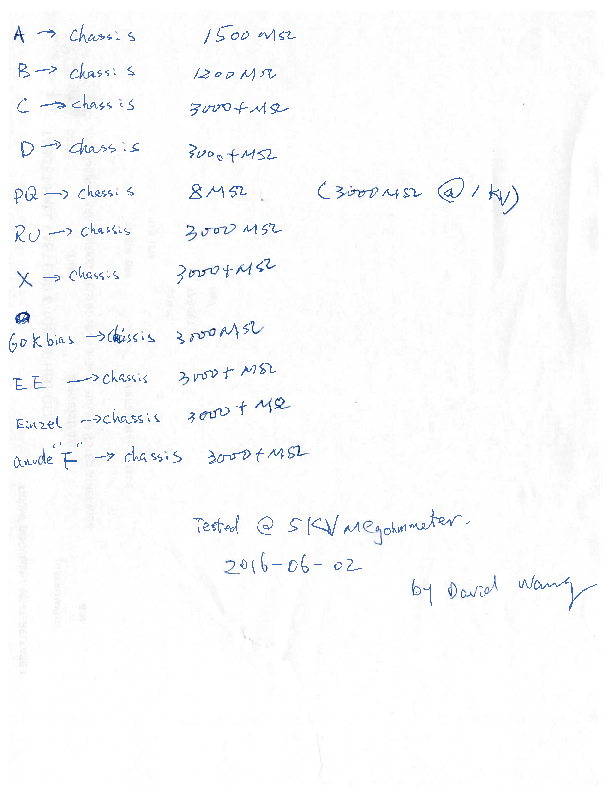 A → chassis 1500 MΩ
B → chassis 1200 MΩ
C → chassis 3000+ MΩ
D → chassis 3000+ MΩ
PQ → chassis 8 MΩ (3000 MΩ @ 1 KV)
RU → chassis 3000 MΩ
X → chassis 3000+ MΩ
60K bias → chassis 3000 MΩ
EE → chassis 3000+ MΩ
Einzel → chassis 3000+ MΩ
anode "F" → chassis 3000+ MΩ
Tested @ 5KV Megohmmeter.
2016-06-02
by David Wang